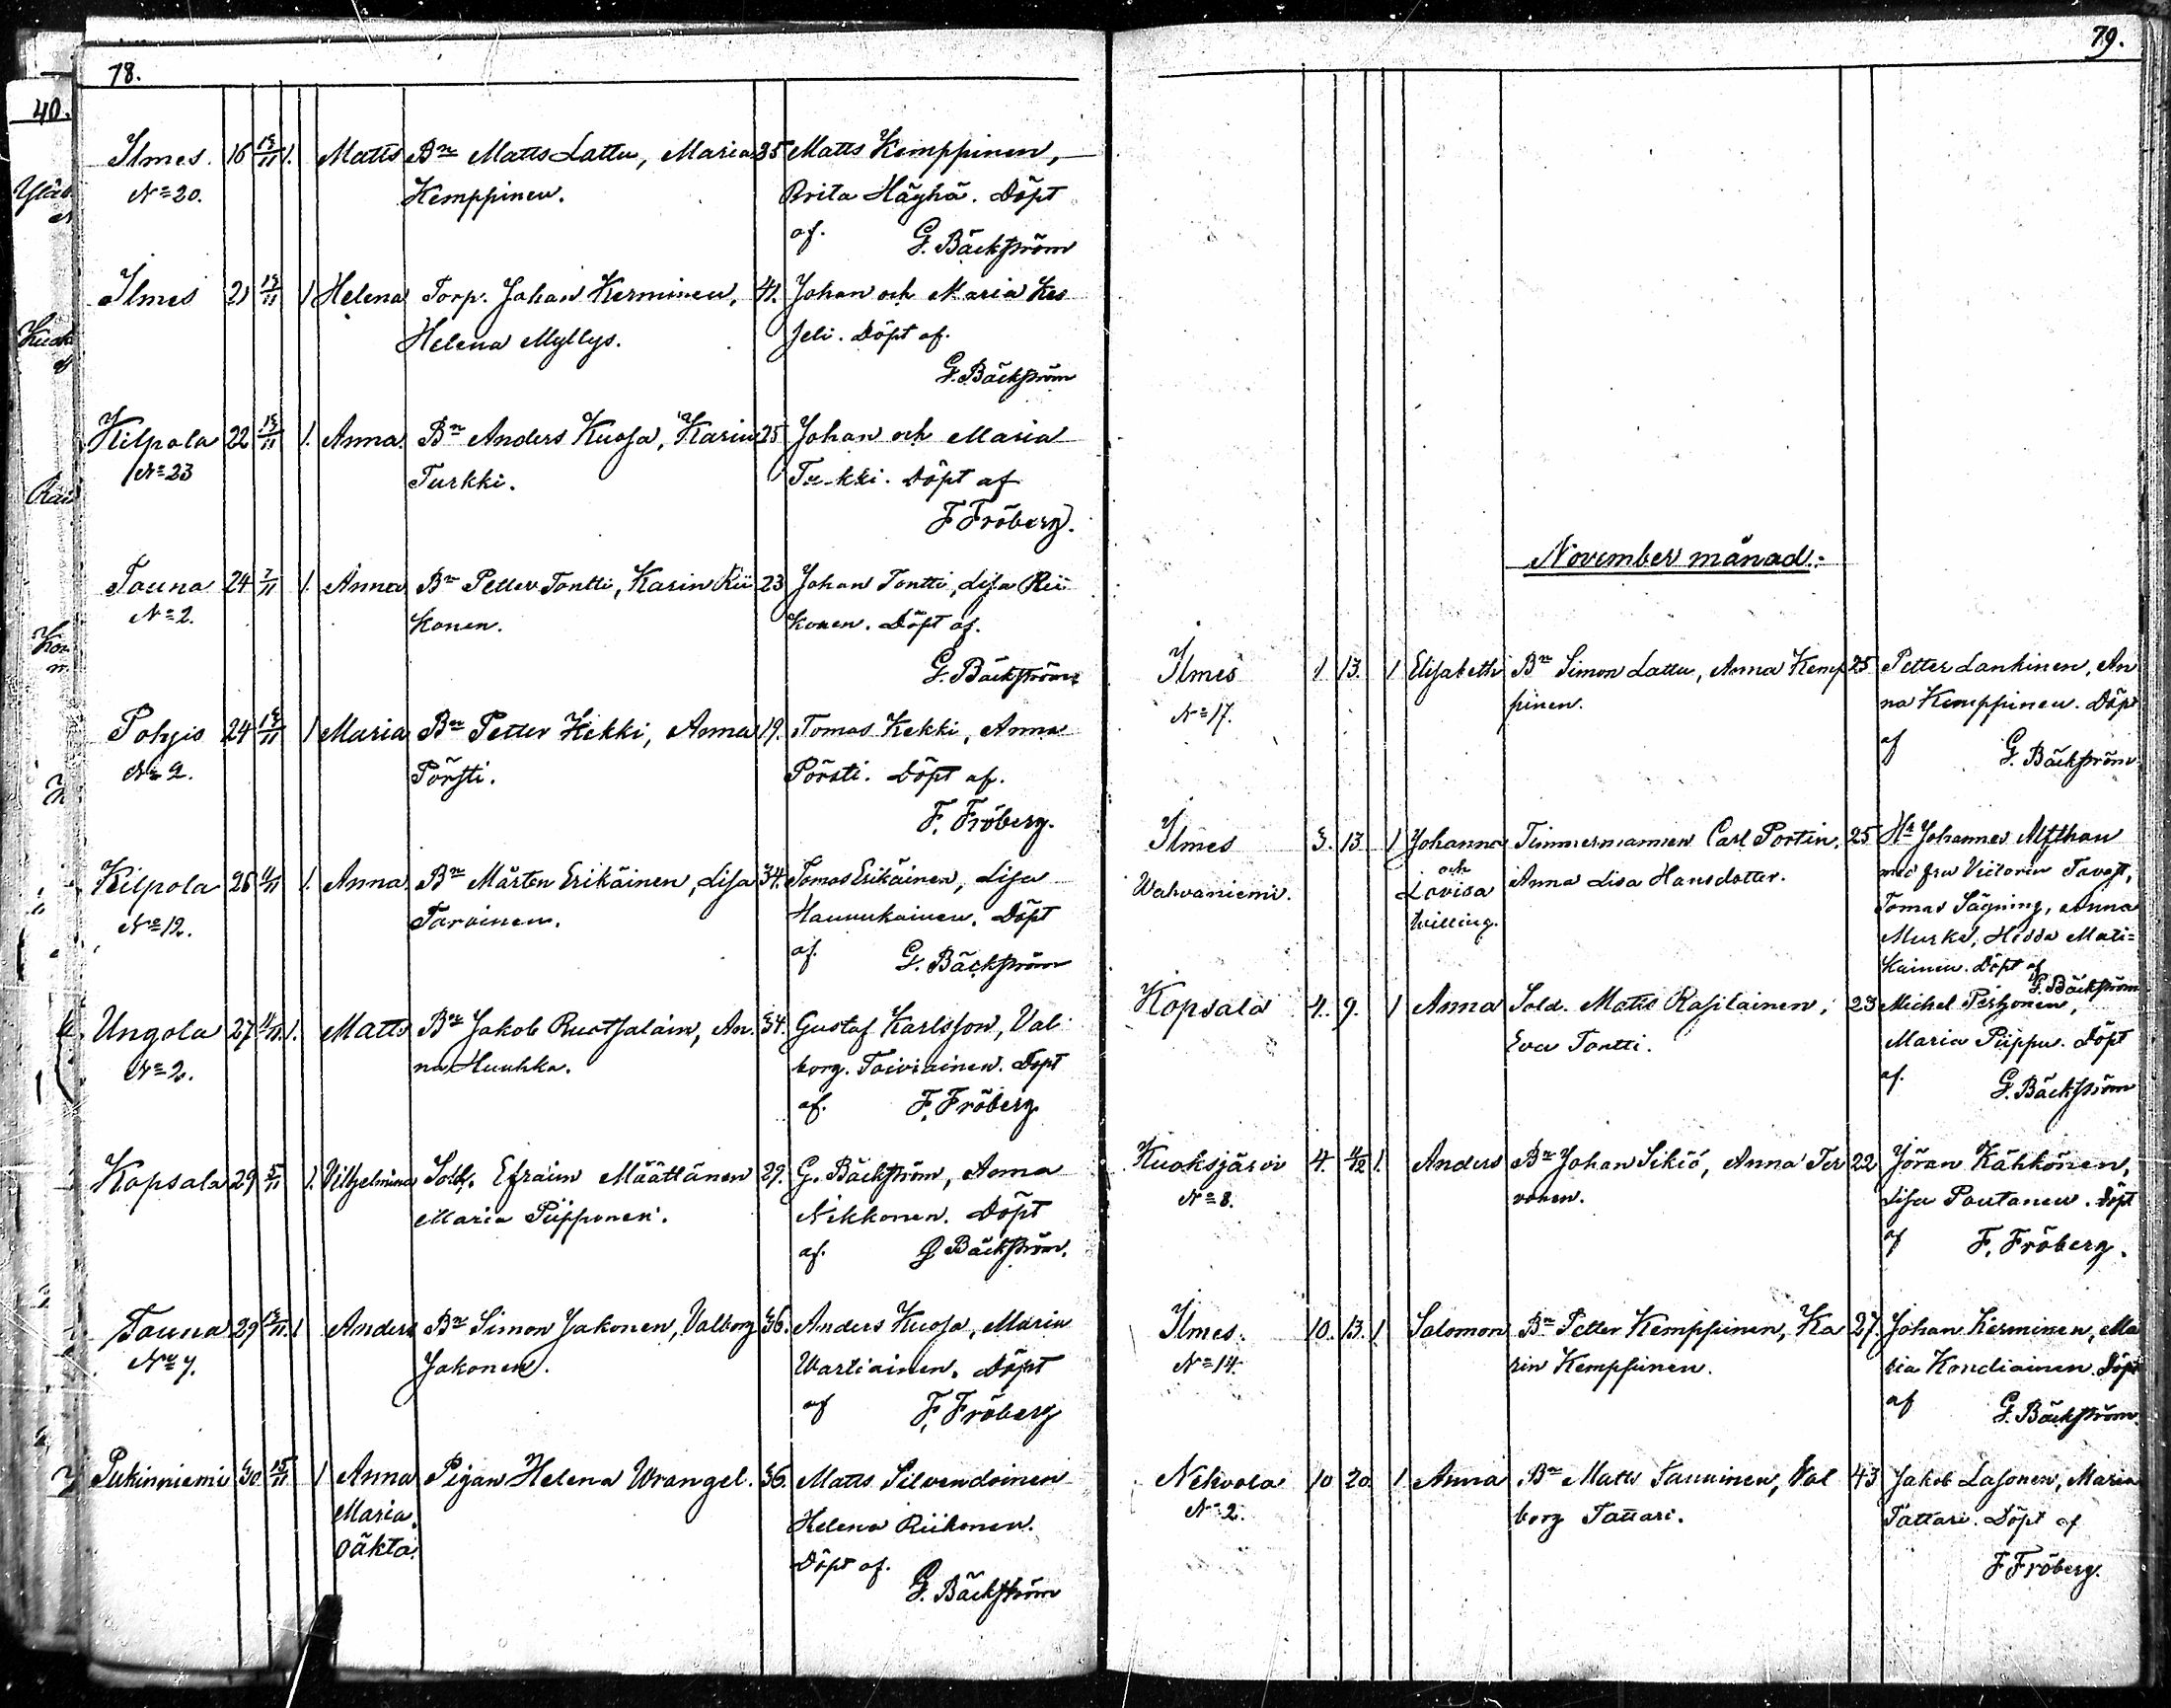 78.
40.
Ilmes. 16 13/11 1. Matts Bn Matts Lattu, Maria 35 Matts Kemppinen,
No 20. Kemppinen. Brita Häyhä. Döpt
af. G. Bäckström
Ilmes 21 13/11 1 Helena Torp. Johan Kerminen, 41. Johan och Maria Kes
Helena Myllys. seli. Döpt af.
G. Bäckström
Kilpola 22 13/11 1. Anna. Bn Anders Kuosa, Karin 25 Johan och Maria
No 23 Turkki. Turkki. Döpt af
F Fröberg.
Tauna 24 7/11 1. Anna Bn Petter Tontti, Karin Rii 23 Johan Tontti, Lisa Rii
No 2. konen. konen. Döpt af.
G. Bäckström
Pohjis 24 13/11 1 Maria Bn Petter Kekki, Anna 19. Tomas Kekki, Anna
No 2. Pörsti. Pörsti. Döpt af.
F. Fröberg.
Kilpola 26 1. Anna. Bn Mårten Erikäinen, Lisa 34. Tomas Erikäinen, Lisa
No 12. Tarvainen. Hannukainen. Döpt
af. G. Bäckström
Ungola 27 1. Matts Bn Jakob Ruotsalain, An. 34. Gustaf Karlsson, Val
No 2. na Huuhka. borg. Toiviainen. Döpt
af. F. Fröberg
Kopsala 29 5/11 1. Vilhelmina Sold. Efraim Määttänen 29. G. Bäckström, Anna
Maria Piipponen. Nikkonen. Döpt
af. G Bäckström.
Tauna 29 13/11 1 Anders Bn Simon Jakonen, Valborg 36. Anders Kuosa, Maria
No 7. Jakonen. Wartiainen. Döpt
af F. Fröberg
Pukinniemi 30. 15/11 1 Anna Pigan Helena Wrangel. 36. Matts Silvendoinen
Maria. Helena Riikonen.
oäkta. Döpt af.
G. Bäckström
79.
November månad.
Ilmes 1 13. 1 Elisabeth Bn Simon Lattu, Anna Kemp 25 Petter Lankinen, An
No 17. pinen. na Kemppinen. Döpt
af G. Bäckström
Ilmes 3. 13 1 Johanna Timmermannen Carl Portin, 25 Hr Johannes Alfthan
och med fru Victoria
Wahvaniemi. Lovisa Anna Lisa Hansdotter. Tomas Sägning, Anna
tvilling. Murke, Hedda Mati=
kainen. Döpt af
G. Bäckström
Kopsala 4. 9. 1 Anna Sold. Matts Rasilainen, 23 Michel Pesonen,
Eva Tontti. Maria Piippu. Döpt
af. G. Bäckström
Kuoksjärvi 4. 4/12 1. Anders Bn Johan Sikiö, Anna Ter 22 Jöran Kähkönen,
No 8. vonen. Lisa Pautanen. Döpt
af F. Fröberg.
Ilmes. 10. 13. 1 Salomon Bn Petter Kemppinen, Ka 27. Johan Kerminen, Ma
No 14. rin Kemppinen. ria Kondiainen. Döpt
af G. Bäckström
Nehvola 10 20. 1 Anna Bn Matts Tanninen, Val 43 Jakob Lasonen, Maria
No 2. borg Tattari. Tattari. Döpt af
F Fröberg.